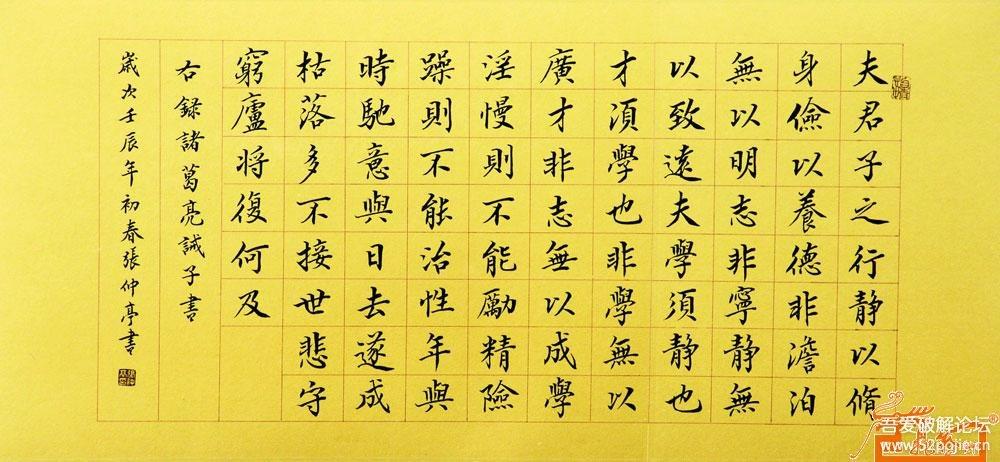 夫君子之行静以脩
身儉以養德非澹泊
無以明志非寧静無
以致遠夫學須静也
才須學也非學無以
廣才非志無以成學
淫慢則不能勵精險
躁則不能治性年與
時馳意與日去遂成
枯落多不接世悲守
窮廬将復何及
右録諸葛亮誡子書
嵗次壬辰年初春張仲亭書
吾爱破解论坛
www.52pojie.cn